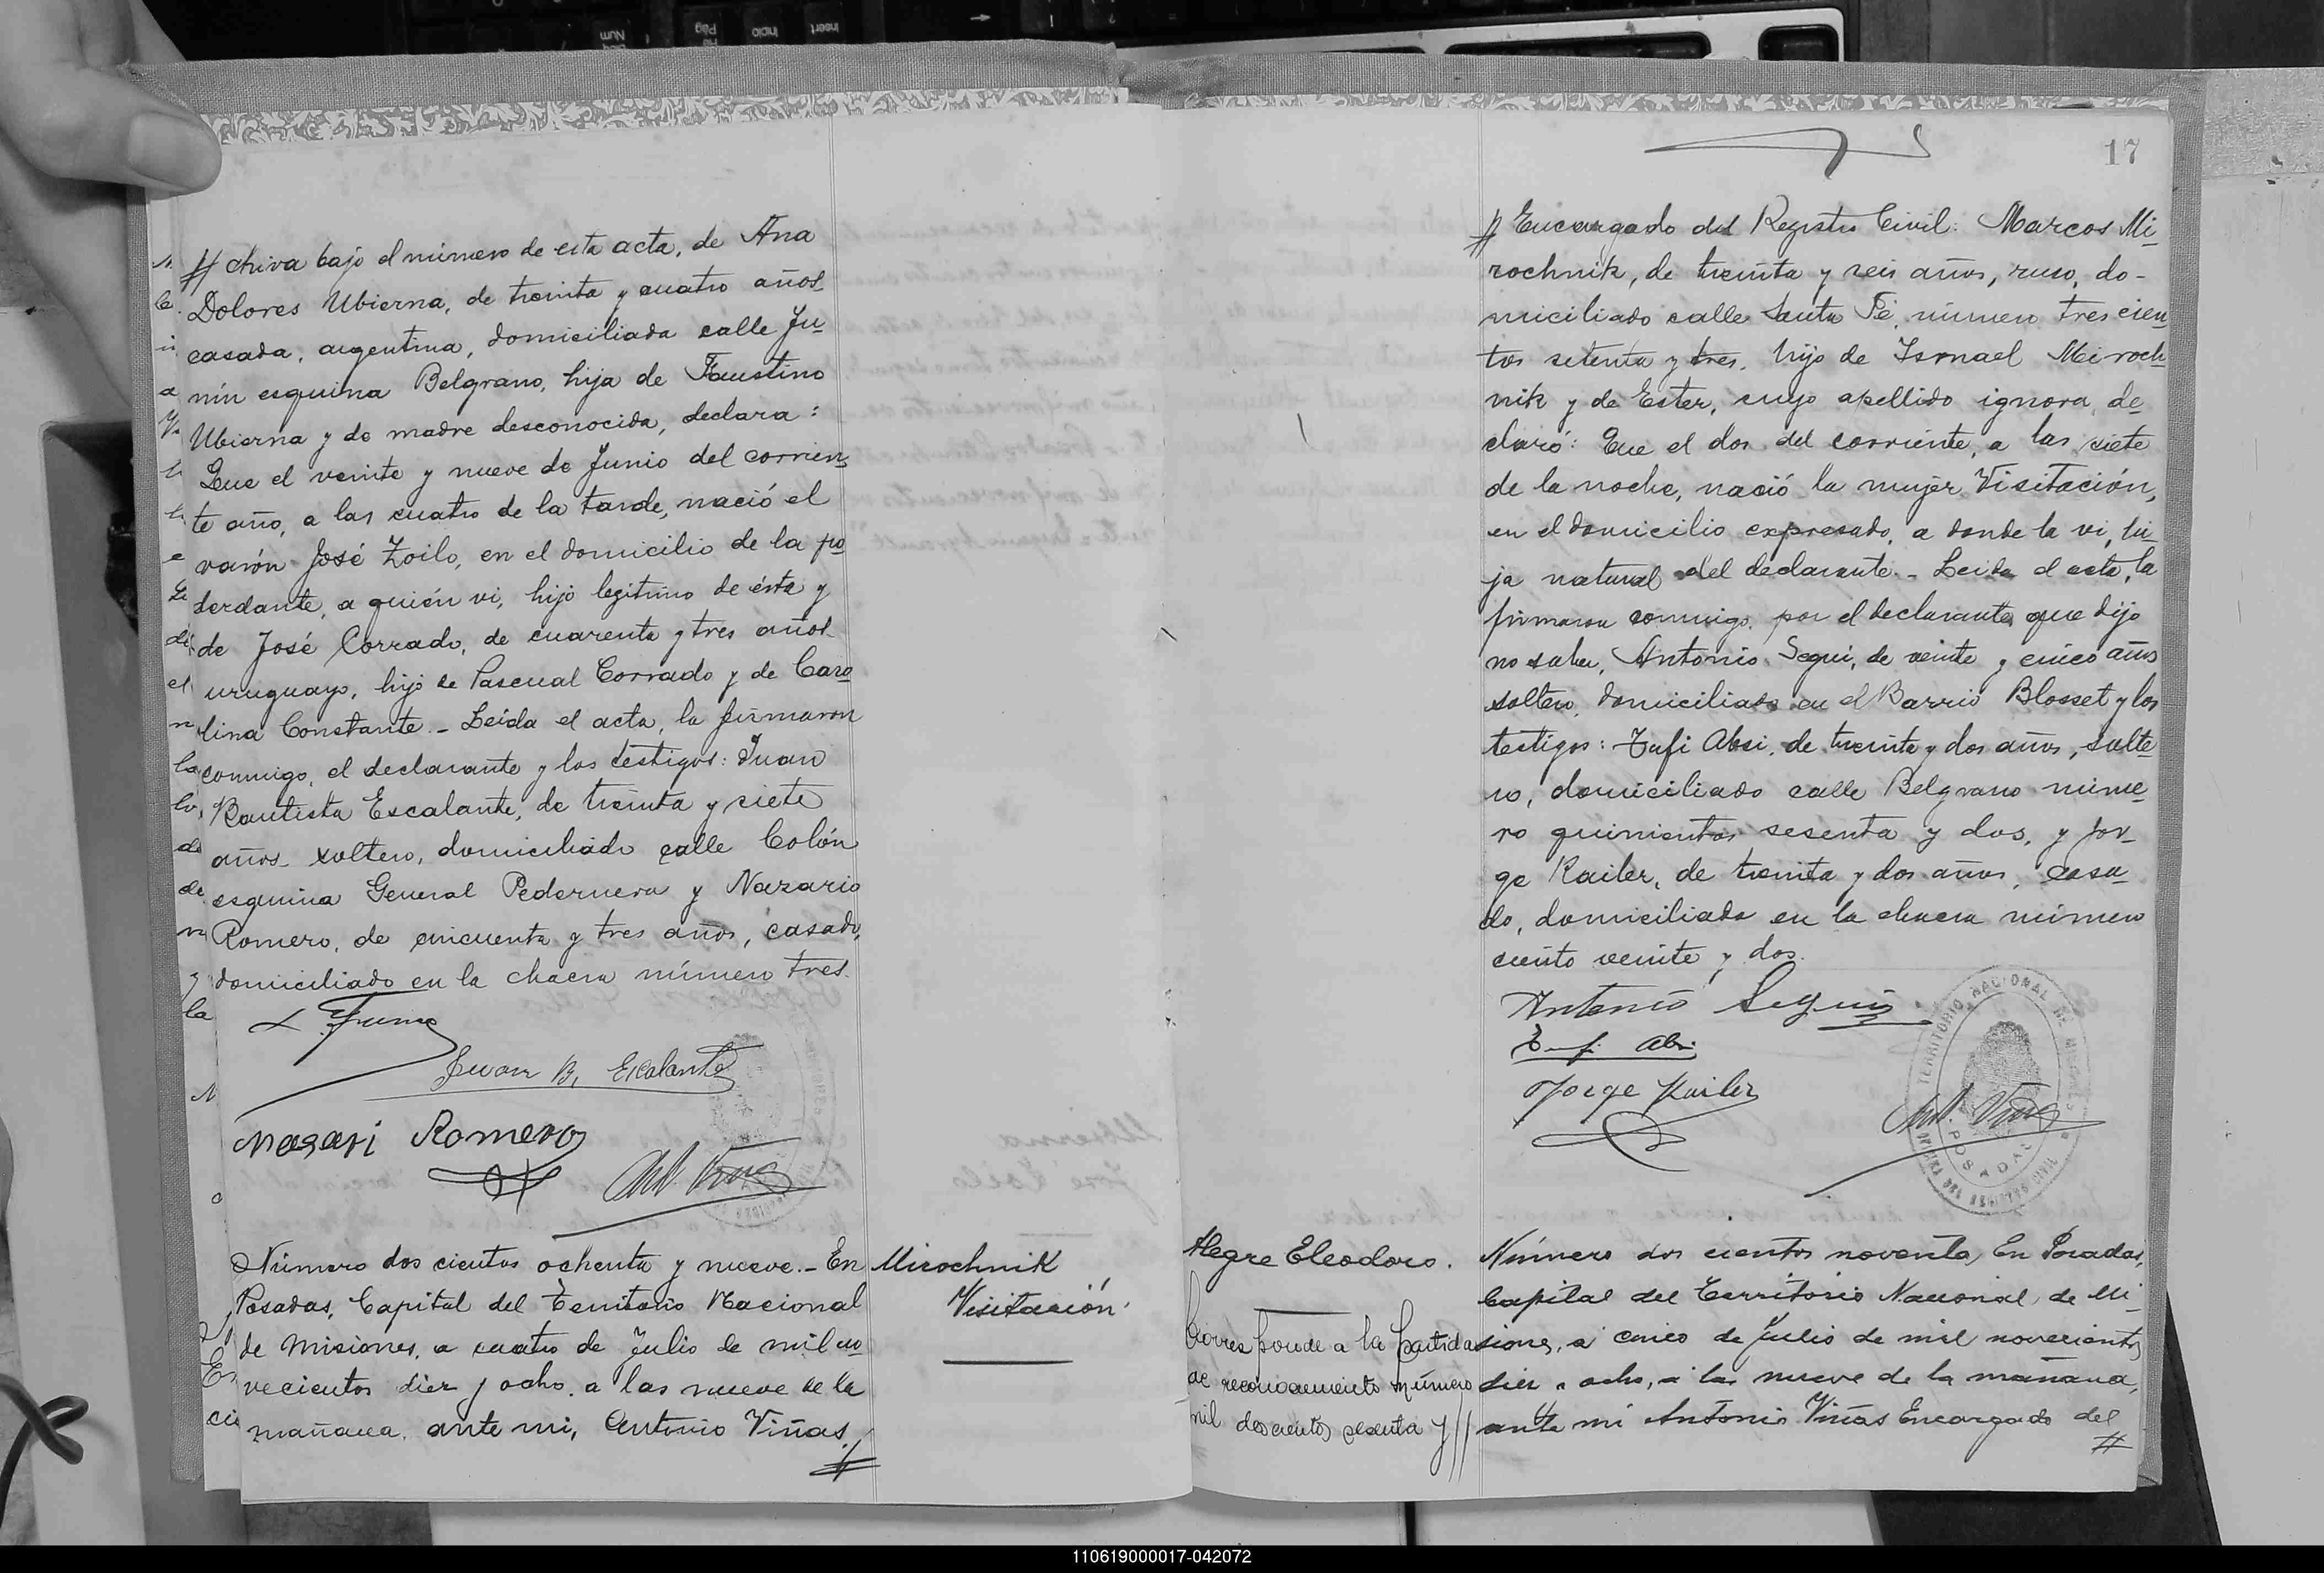 // chiva bajo el número de esta acta, de Ana
Dolores Ubierna, de treinta y cuatro años
casada, argentina, domiciliada calle Ju
nín esquina Belgrano, hija de Faustino
Ubierna y de madre desconocida, declara:
Que el veinte y nueve de Junio del corrien
te año, a las cuatro de la tarde, nació el
varón José Zoilo, en el domicilio de la po
derdante, a quién vi, hijo legítimo de ésta y
de José Corrado, de cuarenta y tres años
uruguayo, hijo de Pascual Corrado y de Caro
lina Constante.- Leída el acta, la firmaron
conmigo, el declarante y los testigos: Juan
Bautista Escalante, de treinta y siete
años soltero, domiciliado calle Colón
esquina General Pedernera y Nazario
Romero, de cincuenta y tres años, casado,
domiciliado en la chacra número tres.
Juan B. Escalante
Nasari Romero
Ant. Viñas
Número dos cientos ochenta y nueve.- En
Posadas, Capital del Territorio Nacional
de Misiones, a cuatro de Julio de mil no
vecientos diez y ocho, a las nueve de la
mañana, ante mi, Antonio Viñas, //
Mirochnik
Visitación
17
// Encargado del Registro Civil: Marcos Mi
rochnik, de treinta y seis años, ruso, do-
miciliado calle Santa Fé, número tres cien
tos setenta y tres, hijo de Ismael Miroch
nik y de Ester, cuyo apellido ignora, de
claró: Que el dos del corriente, a las siete
de la noche, nació la mujer Visitación,
en el domicilio expresado, a donde la vi, hi
ja natural del declarante.- Leida el acta, la
firmaron conmigo, por el declarante que dijo
no saber, Antonio Segui, de veinte y cinco años
soltero, domiciliado en el Barrio Blosset y los
testigos: Tufi Absi, de treinta y dos años, solte
ro, domiciliado calle Belgrano núme
ro quinientos sesenta y dos, y Jor
ge Kailer, de treinta y dos años, casa
do, domiciliado en la chacra número
ciento veinte y dos.
Antonio Segui
Jorge Kailer
Ant. Viñas
TERRITORIO NACIONAL DE MISIONES
POSADAS
OFICINA DEL REGISTRO CIVIL
Alegre Eleodoro.
Corresponde a la partida
de reconocimiento número
mil doscientos sesenta y //
Número dos cientos noventa, En Posadas,
Capital del Territorio Nacional de Mi
siones, a cinco de Julio de mil novecientos
diez y ocho, a las nueve de la mañana,
ante mí Antonio Viñas Encargado del //
110619000017-042072